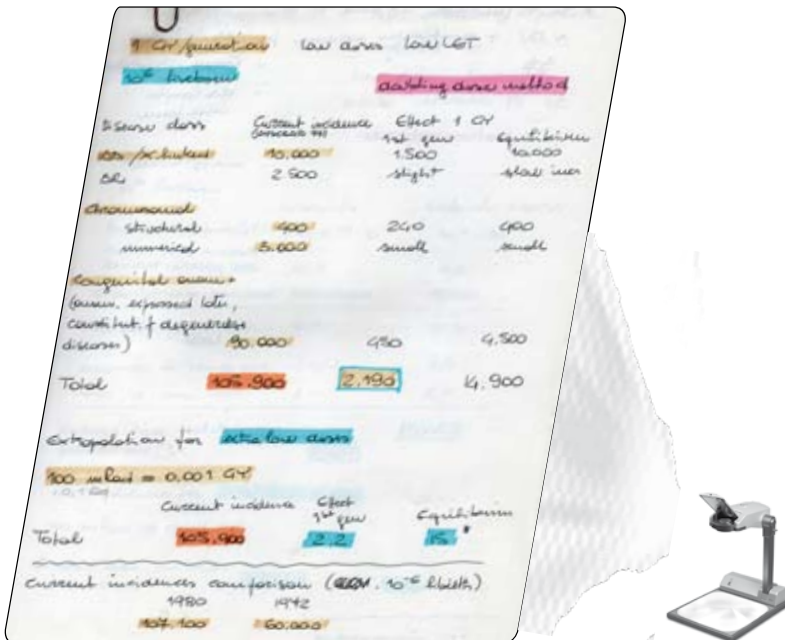 1 GY/generation low doses low LET
10⁶ liveborn
doubling dose method
Disease class Current incidence Effect 1 GY
1st gen Equilibrium
AD/X-linked 10.000 1.500 10.000
AR 2 500 slight slow incr
Chromosomal
structural 400 240 400
numerical 3.000 small small
Congenital anom.
(anom. expressed later,
constitut. & degenerative
diseases) 90.000 450 4.500
Total 105.900 2.190 14.900
Extrapolation for extra low doses
100 mRad = 0.001 GY
Current incidence Effect
1st gen Equilibrium
Total 105.900 2.2 15 *
Current incidences comparison ( 10⁻⁶ )
1980 1972
107.100 60.000